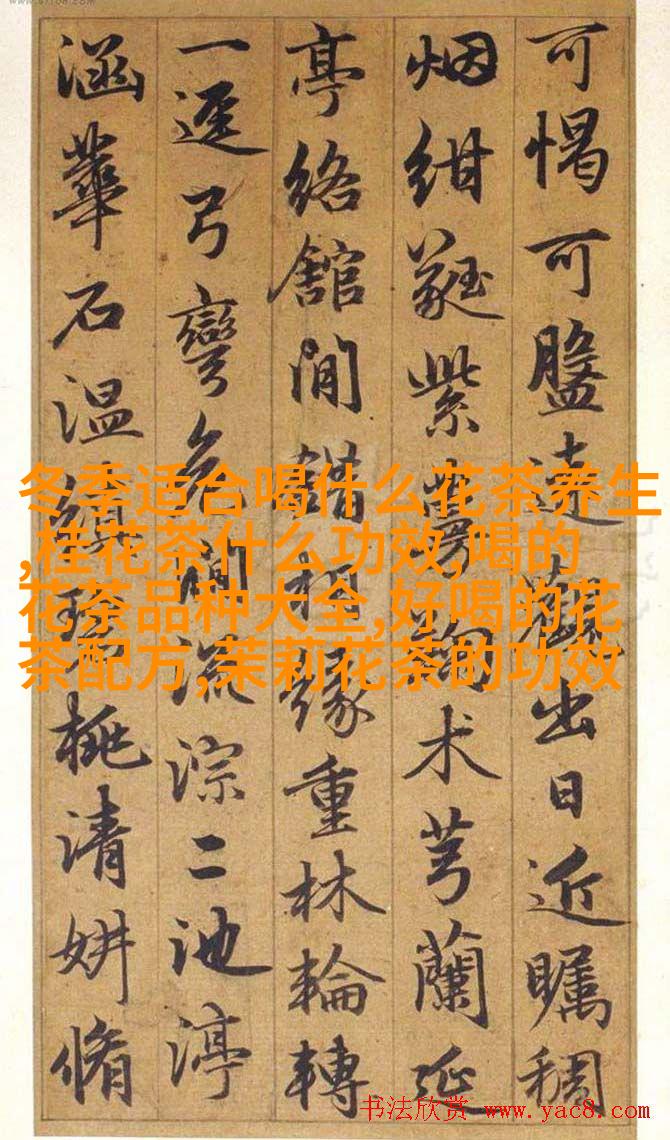 可愒可盥遠觀出日近矚稠
烟紺蕤紫术芎蘭延
亭絡館間錯相緣重林輪轉
一逕弓彎間流淙二池渟
涵華石温桃清妍脩
冬季适合喝什么花茶养生
,桂花茶什么功效,喝的
花茶品种大全,好喝的花
茶配方,茉莉花茶的功效
书法欣赏 www.yac8.com